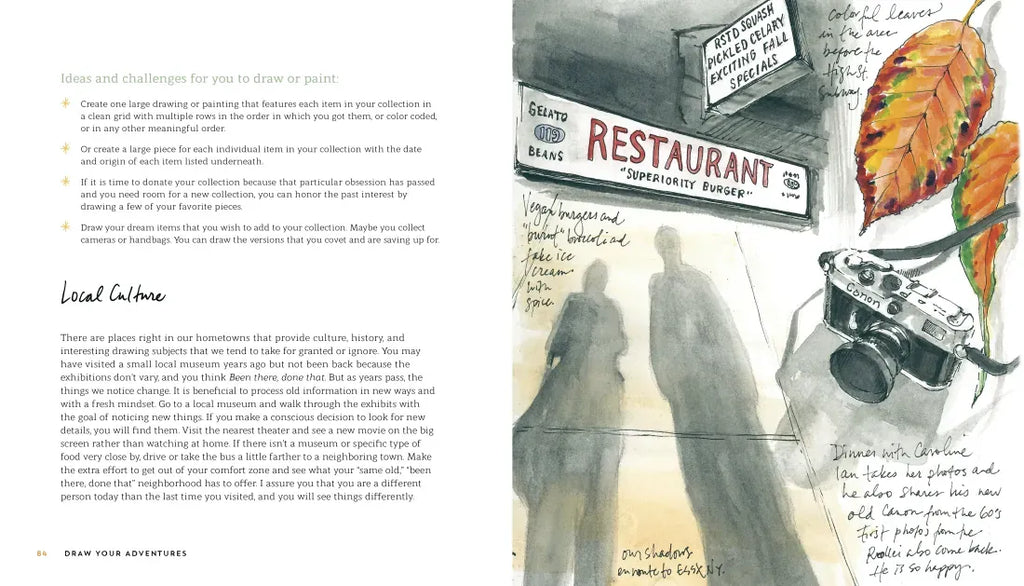 Ideas and challenges for you to draw or paint:
Create one large drawing or painting that features each item in your collection in
a clean grid with multiple rows in the order in which you got them, or color coded,
or in any other meaningful order.
Or create a large piece for each individual item in your collection with the date
and origin of each item listed underneath.
If it is time to donate your collection because that particular obsession has passed
and you need room for a new collection, you can honor the past interest by
drawing a few of your favorite pieces.
Draw your dream items that you wish to add to your collection. Maybe you collect
cameras or handbags. You can draw the versions that you covet and are saving up for.
Local Culture
There are places right in our hometowns that provide culture, history, and
interesting drawing subjects that we tend to take for granted or ignore. You may
have visited a small local museum years ago but not been back because the
exhibitions don't vary, and you think Been there, done that. But as years pass, the
things we notice change. It is beneficial to process old information in new ways and
with a fresh mindset. Go to a local museum and walk through the exhibits with
the goal of noticing new things. If you make a conscious decision to look for new
details, you will find them. Visit the nearest theater and see a new movie on the big
screen rather than watching at home. If there isn't a museum or specific type of
food very close by, drive or take the bus a little farther to a neighboring town. Make
the extra effort to get out of your comfort zone and see what your "same old," "been
there, done that" neighborhood has to offer. I assure you that you are a different
person today than the last time you visited, and you will see things differently.
84 DRAW YOUR ADVENTURES
RSTD SQUASH
PICKLED CELARY
EXCITING FALL
SPECIALS
colorful leaves
in the area
before the
High St.
Subway.
GELATO
119
BEANS
RESTAURANT
"SUPERIORITY BURGER"
Vegan burgers and
"burnt" broccoli and
fake ice
cream
with
spice.
Canon
Dinner with Caroline
Ian takes her photos and
he also shares his new
old Canon from the 60's
First photos from the
Rollei also come back.
He is so happy.
our shadows
en route to ESSX, NY.